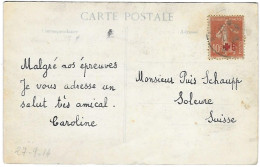 CARTE POSTALE
Malgré nos épreuves
Je vous adresse un
salut très amical.
Caroline
Monsieur Puis Schaupp
Soleure
Suisse